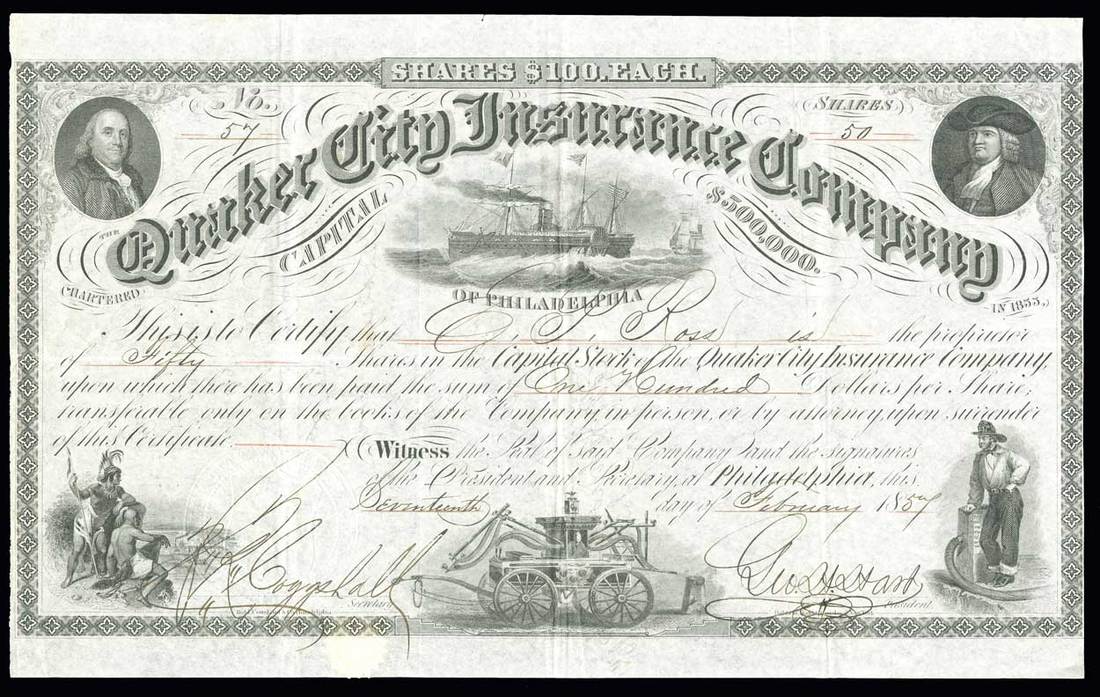 SHARES $100. EACH.
No. 57
SHARES 50
THE
Quaker City Insurance Company
CAPITAL $500,000.
OF PHILADELPHIA
CHARTERED IN 1855,
This is to Certify that C. T. Ross is the proprietor
of Fifty Shares in the Capital Stock of the Quaker City Insurance Company,
upon which there has been paid the sum of One Hundred Dollars per Share;
transferable only on the books of the Company, in person, or by attorney, upon surrender
of this Certificate
Witness the Seal of said Company and the signatures
of the President and Secretary, at Philadelphia, this
Seventeenth day of February 1857
Coggshall
Geo. H. Hart
Secretary
President